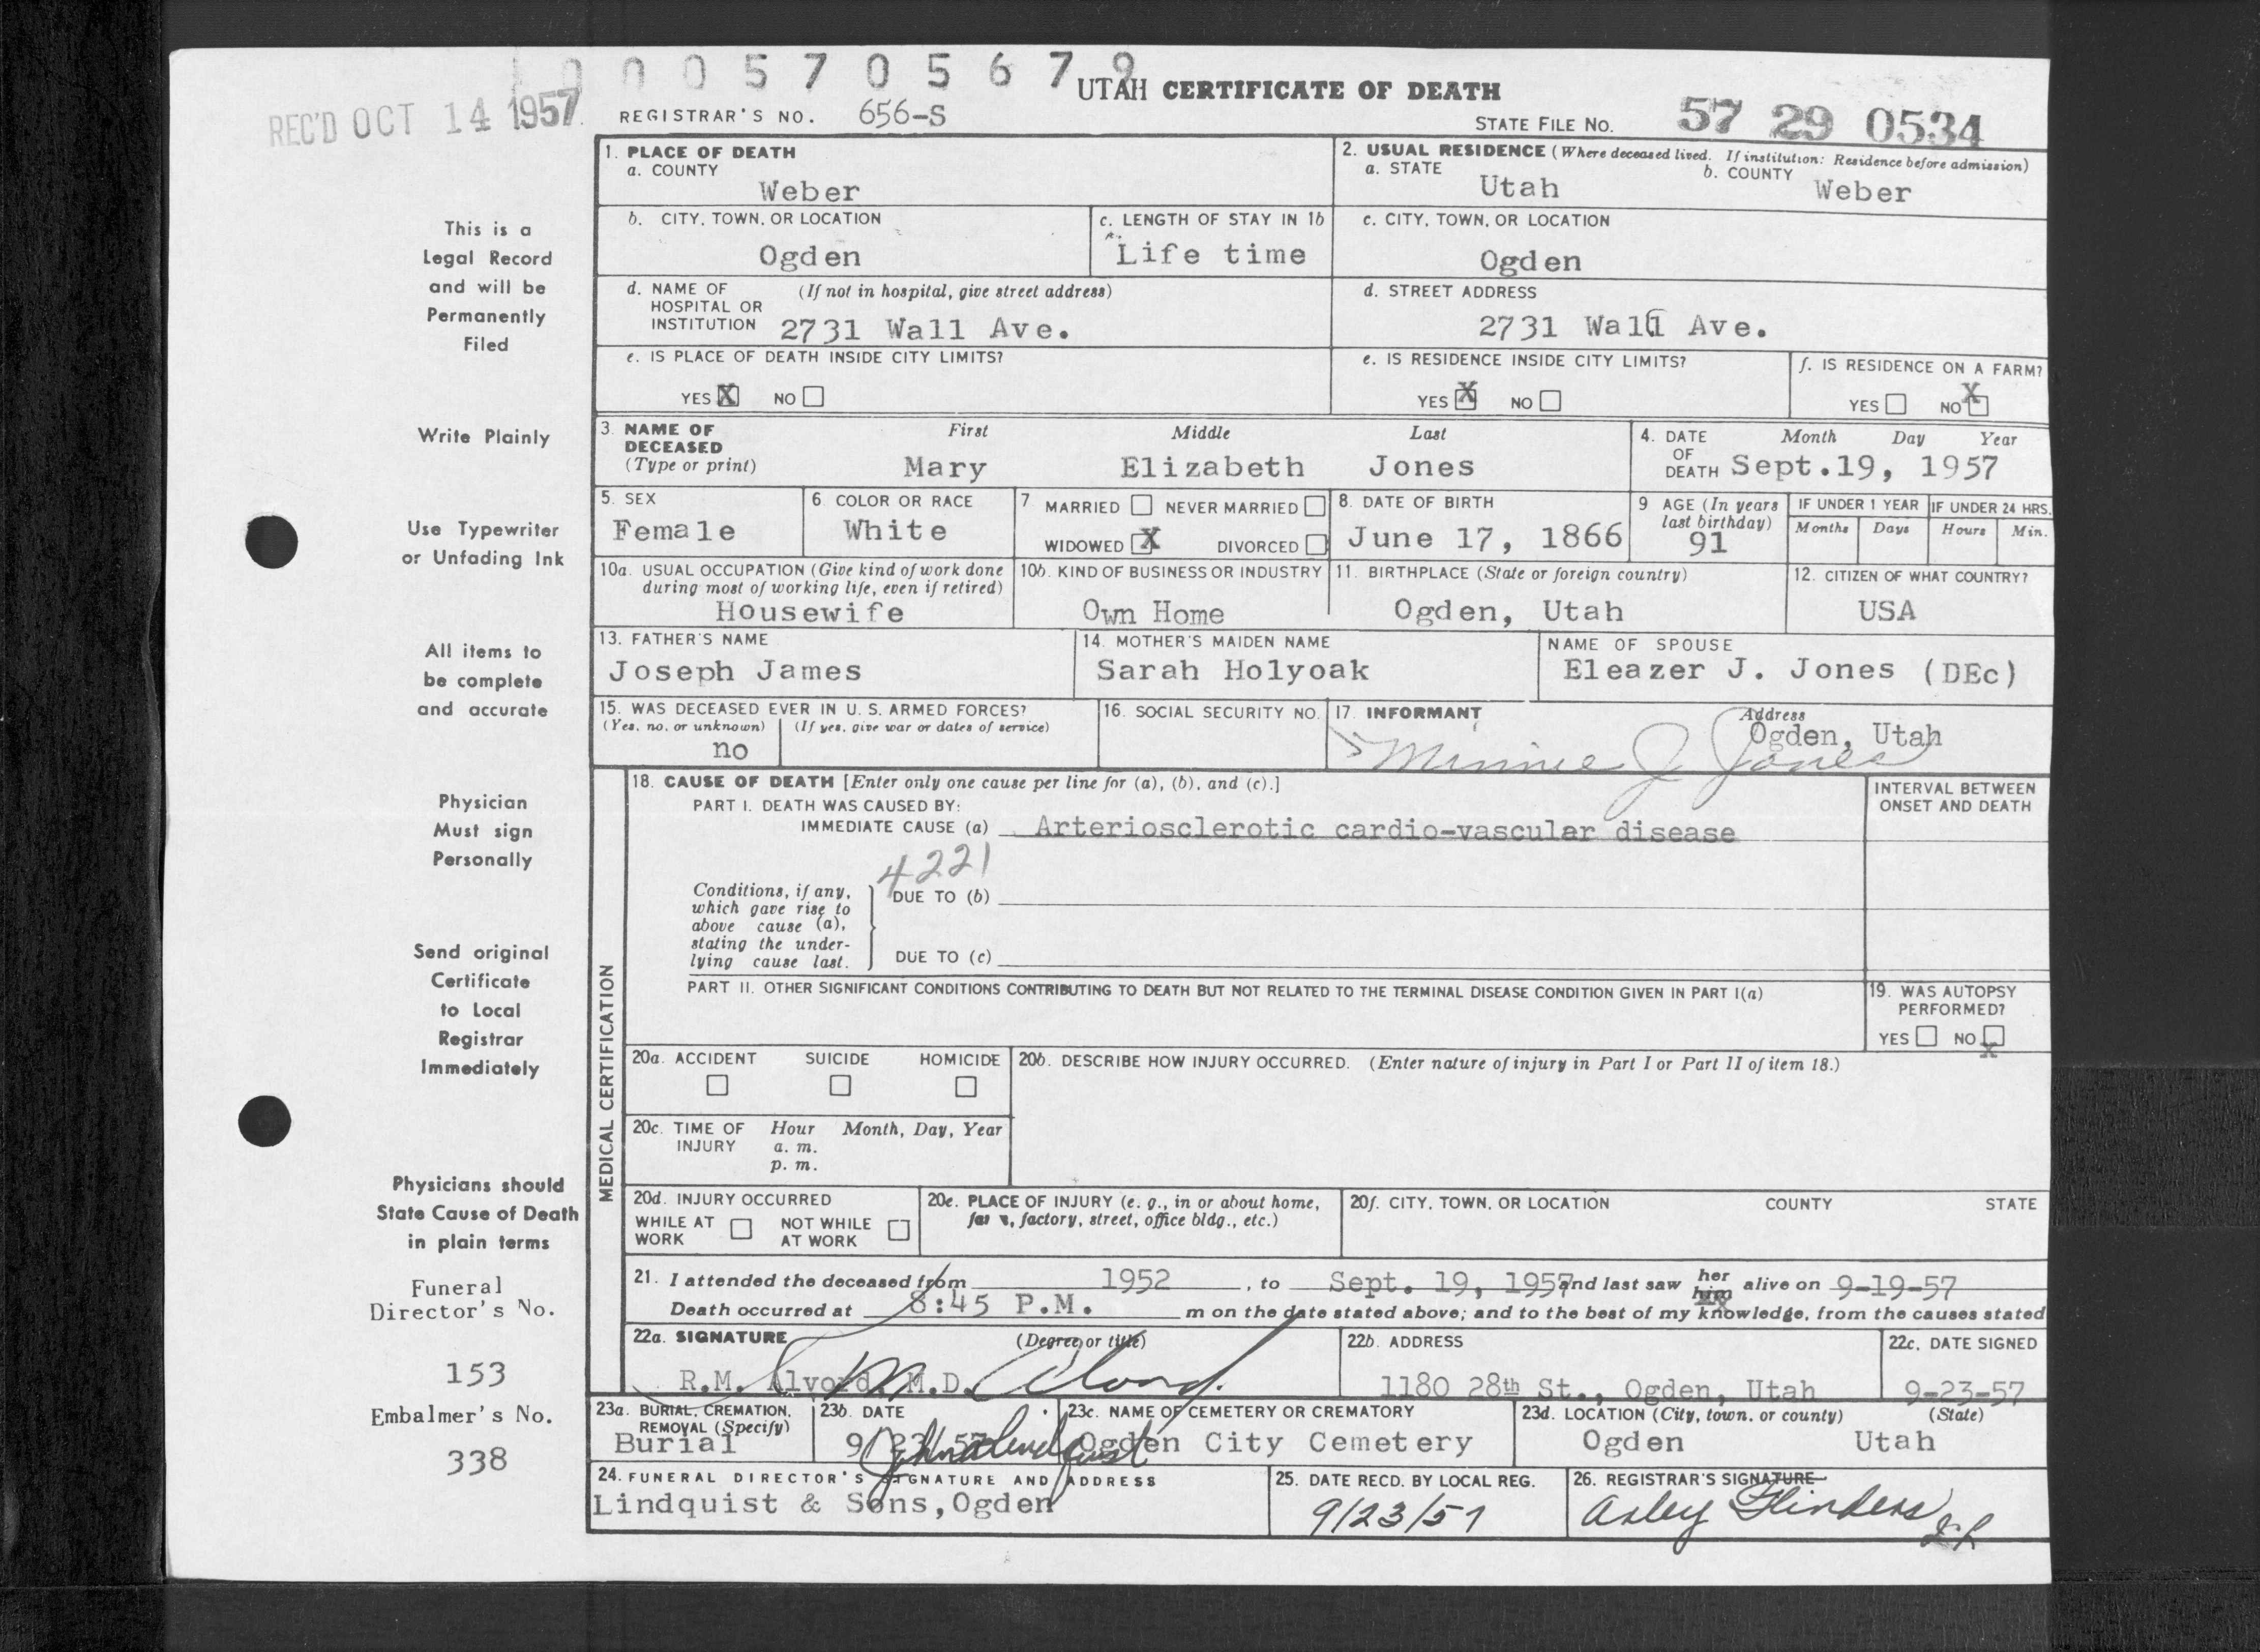 1 0 0 0 5 7 0 5 6 7 9
REC'D OCT 14 1957
UTAH CERTIFICATE OF DEATH
REGISTRAR'S NO. 656-S
STATE FILE No. 57 29 0534
1. PLACE OF DEATH
a. COUNTY
Weber
2. USUAL RESIDENCE (Where deceased lived. If institution: Residence before admission)
a. STATE Utah b. COUNTY Weber
This is a
Legal Record
and will be
Permanently
Filed
b. CITY, TOWN, OR LOCATION
Ogden
c. LENGTH OF STAY IN 1b
Life time
c. CITY, TOWN, OR LOCATION
Ogden
d. NAME OF (If not in hospital, give street address)
HOSPITAL OR
INSTITUTION 2731 Wall Ave.
d. STREET ADDRESS
2731 Wall Ave.
e. IS PLACE OF DEATH INSIDE CITY LIMITS?
YES X NO
e. IS RESIDENCE INSIDE CITY LIMITS?
YES X NO
f. IS RESIDENCE ON A FARM?
YES NO X
Write Plainly
3. NAME OF DECEASED (Type or print)
First Middle Last
Mary Elizabeth Jones
4. DATE OF DEATH Month Day Year
Sept.19, 1957
Use Typewriter
or Unfading Ink
5. SEX
Female
6. COLOR OR RACE
White
7 MARRIED NEVER MARRIED
WIDOWED X DIVORCED
8. DATE OF BIRTH
June 17, 1866
9 AGE (In years
last birthday)
91
IF UNDER 1 YEAR IF UNDER 24 HRS.
Months Days Hours Min.
10a. USUAL OCCUPATION (Give kind of work done
during most of working life, even if retired)
Housewife
10b. KIND OF BUSINESS OR INDUSTRY
Own Home
11. BIRTHPLACE (State or foreign country)
Ogden, Utah
12. CITIZEN OF WHAT COUNTRY?
USA
All items to
be complete
and accurate
13. FATHER'S NAME
Joseph James
14. MOTHER'S MAIDEN NAME
Sarah Holyoak
NAME OF SPOUSE
Eleazer J. Jones (DEc)
15. WAS DECEASED EVER IN U. S. ARMED FORCES?
(Yes, no, or unknown) (If yes, give war or dates of service)
no
16. SOCIAL SECURITY NO.
17. INFORMANT Address
Ogden, Utah
Minnie J Jones
MEDICAL CERTIFICATION
Physician
Must sign
Personally
18. CAUSE OF DEATH [Enter only one cause per line for (a), (b), and (c).]
PART I. DEATH WAS CAUSED BY:
IMMEDIATE CAUSE (a) Arteriosclerotic cardio-vascular disease
INTERVAL BETWEEN
ONSET AND DEATH
4221
Conditions, if any,
which gave rise to
above cause (a),
stating the under-
lying cause last.
DUE TO (b)
DUE TO (c)
Send original
Certificate
to Local
Registrar
Immediately
PART II. OTHER SIGNIFICANT CONDITIONS CONTRIBUTING TO DEATH BUT NOT RELATED TO THE TERMINAL DISEASE CONDITION GIVEN IN PART I(a)
19. WAS AUTOPSY
PERFORMED?
YES NO X
20a. ACCIDENT SUICIDE HOMICIDE
20b. DESCRIBE HOW INJURY OCCURRED. (Enter nature of injury in Part I or Part II of item 18.)
20c. TIME OF INJURY Hour Month, Day, Year
a. m.
p. m.
Physicians should
State Cause of Death
in plain terms
20d. INJURY OCCURRED
WHILE AT WORK NOT WHILE AT WORK
20e. PLACE OF INJURY (e. g., in or about home,
factory, street, office bldg., etc.)
20f. CITY, TOWN, OR LOCATION COUNTY STATE
21. I attended the deceased from 1952, to Sept. 19, 1957 and last saw her him alive on 9-19-57
Death occurred at 8:45 P.M. m on the date stated above; and to the best of my knowledge, from the causes stated
Funeral
Director's No.
153
22a. SIGNATURE (Degree or title)
R.M. Alvord, M.D.
22b. ADDRESS
1180 28th St., Ogden, Utah
22c. DATE SIGNED
9-23-57
Embalmer's No.
338
23a. BURIAL, CREMATION,
REMOVAL (Specify)
Burial
23b. DATE
9/23/57
23c. NAME OF CEMETERY OR CREMATORY
Ogden City Cemetery
23d. LOCATION (City, town, or county) (State)
Ogden Utah
24. FUNERAL DIRECTOR'S SIGNATURE AND ADDRESS
Lindquist & Sons, Ogden
25. DATE RECD. BY LOCAL REG.
9/23/57
26. REGISTRAR'S SIGNATURE
Arley Flinders